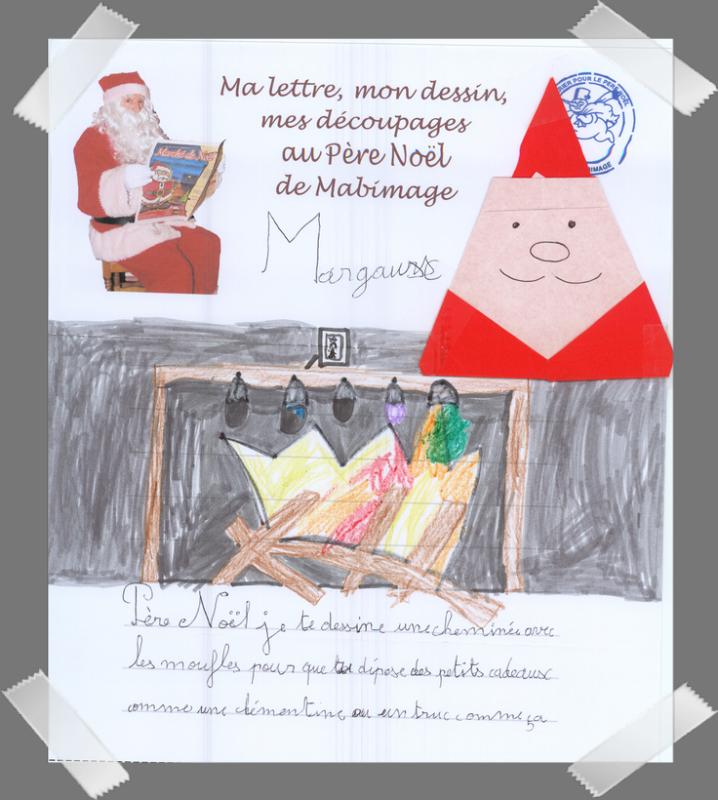 Ma lettre, mon dessin,
mes découpages
au Père Noël
de Mabimage
Marché de Noël
Margaux
Père Noël je te dessine une cheminée avec
les moufles pour que tu dépose des petits cadeaux
comme une clémentine ou un truc comme ça